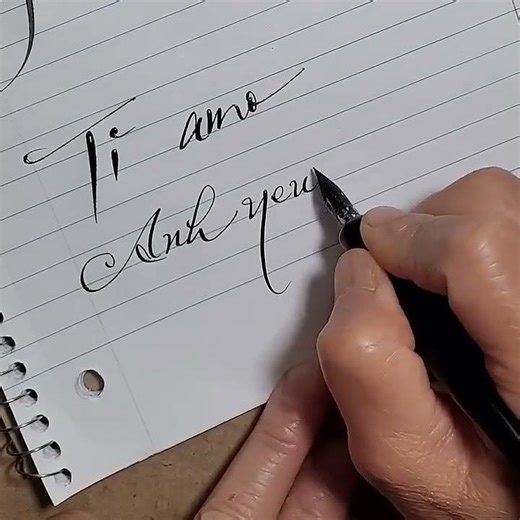 Ti amo
Anh yeu